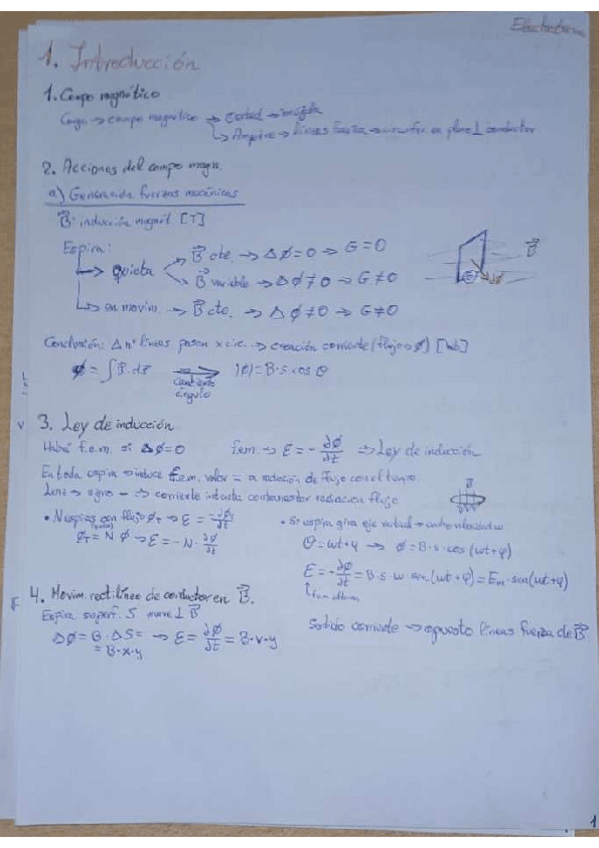 1. Introducción
1. Campo magnético
Carga → campo magnético →
↳ Ampère → líneas fuerza → en plano ⊥ conductor
2. Acciones del campo magn.
a) Generación fuerzas mecánicas
B⃗: inducción magnét. [T]
Espira:
quieta → B⃗ cte. → Δϕ=0 → G=0
→ B⃗ variable → Δϕ≠0 → G≠0
B⃗
→ en movim. → B⃗ cte. → Δϕ≠0 → G≠0
Conclusión: Δ nº líneas pasan x circ. → creación corriente (flujo ϕ) [wb]
ϕ = ∫ B⃗·ds⃗ ⟹ cambiante ángulo |ϕ| = B·s·cos θ
3. Ley de inducción
Habrá f.e.m. si Δϕ=0 f.e.m. → ε = - dϕ/dt ⇒ Ley de inducción
En toda espira se induce f.e.m. valor = a variación de flujo con el tiempo.
Lenz → signo - → corriente intenta contrarrestar variación flujo
• N espiras con flujo ϕT → ε = -dϕT/dt
ϕT = N·ϕ → ε = -N·dϕ/dt
• Si espira gira eje vertical → velocidad w
θ = wt+φ → ϕ = B·s·cos(wt+φ)
ε = -dϕ/dt = B·s·w·sen(wt+φ) = Em·sen(wt+φ)
4. Movim. rectilíneo de conductor en B⃗.
Espira superf. S mueve ⊥ B⃗
Δϕ = B·ΔS = → ε = dϕ/dt = B·v·y
= B·x·y
Sentido corriente → opuesto líneas fuerza de B⃗
1